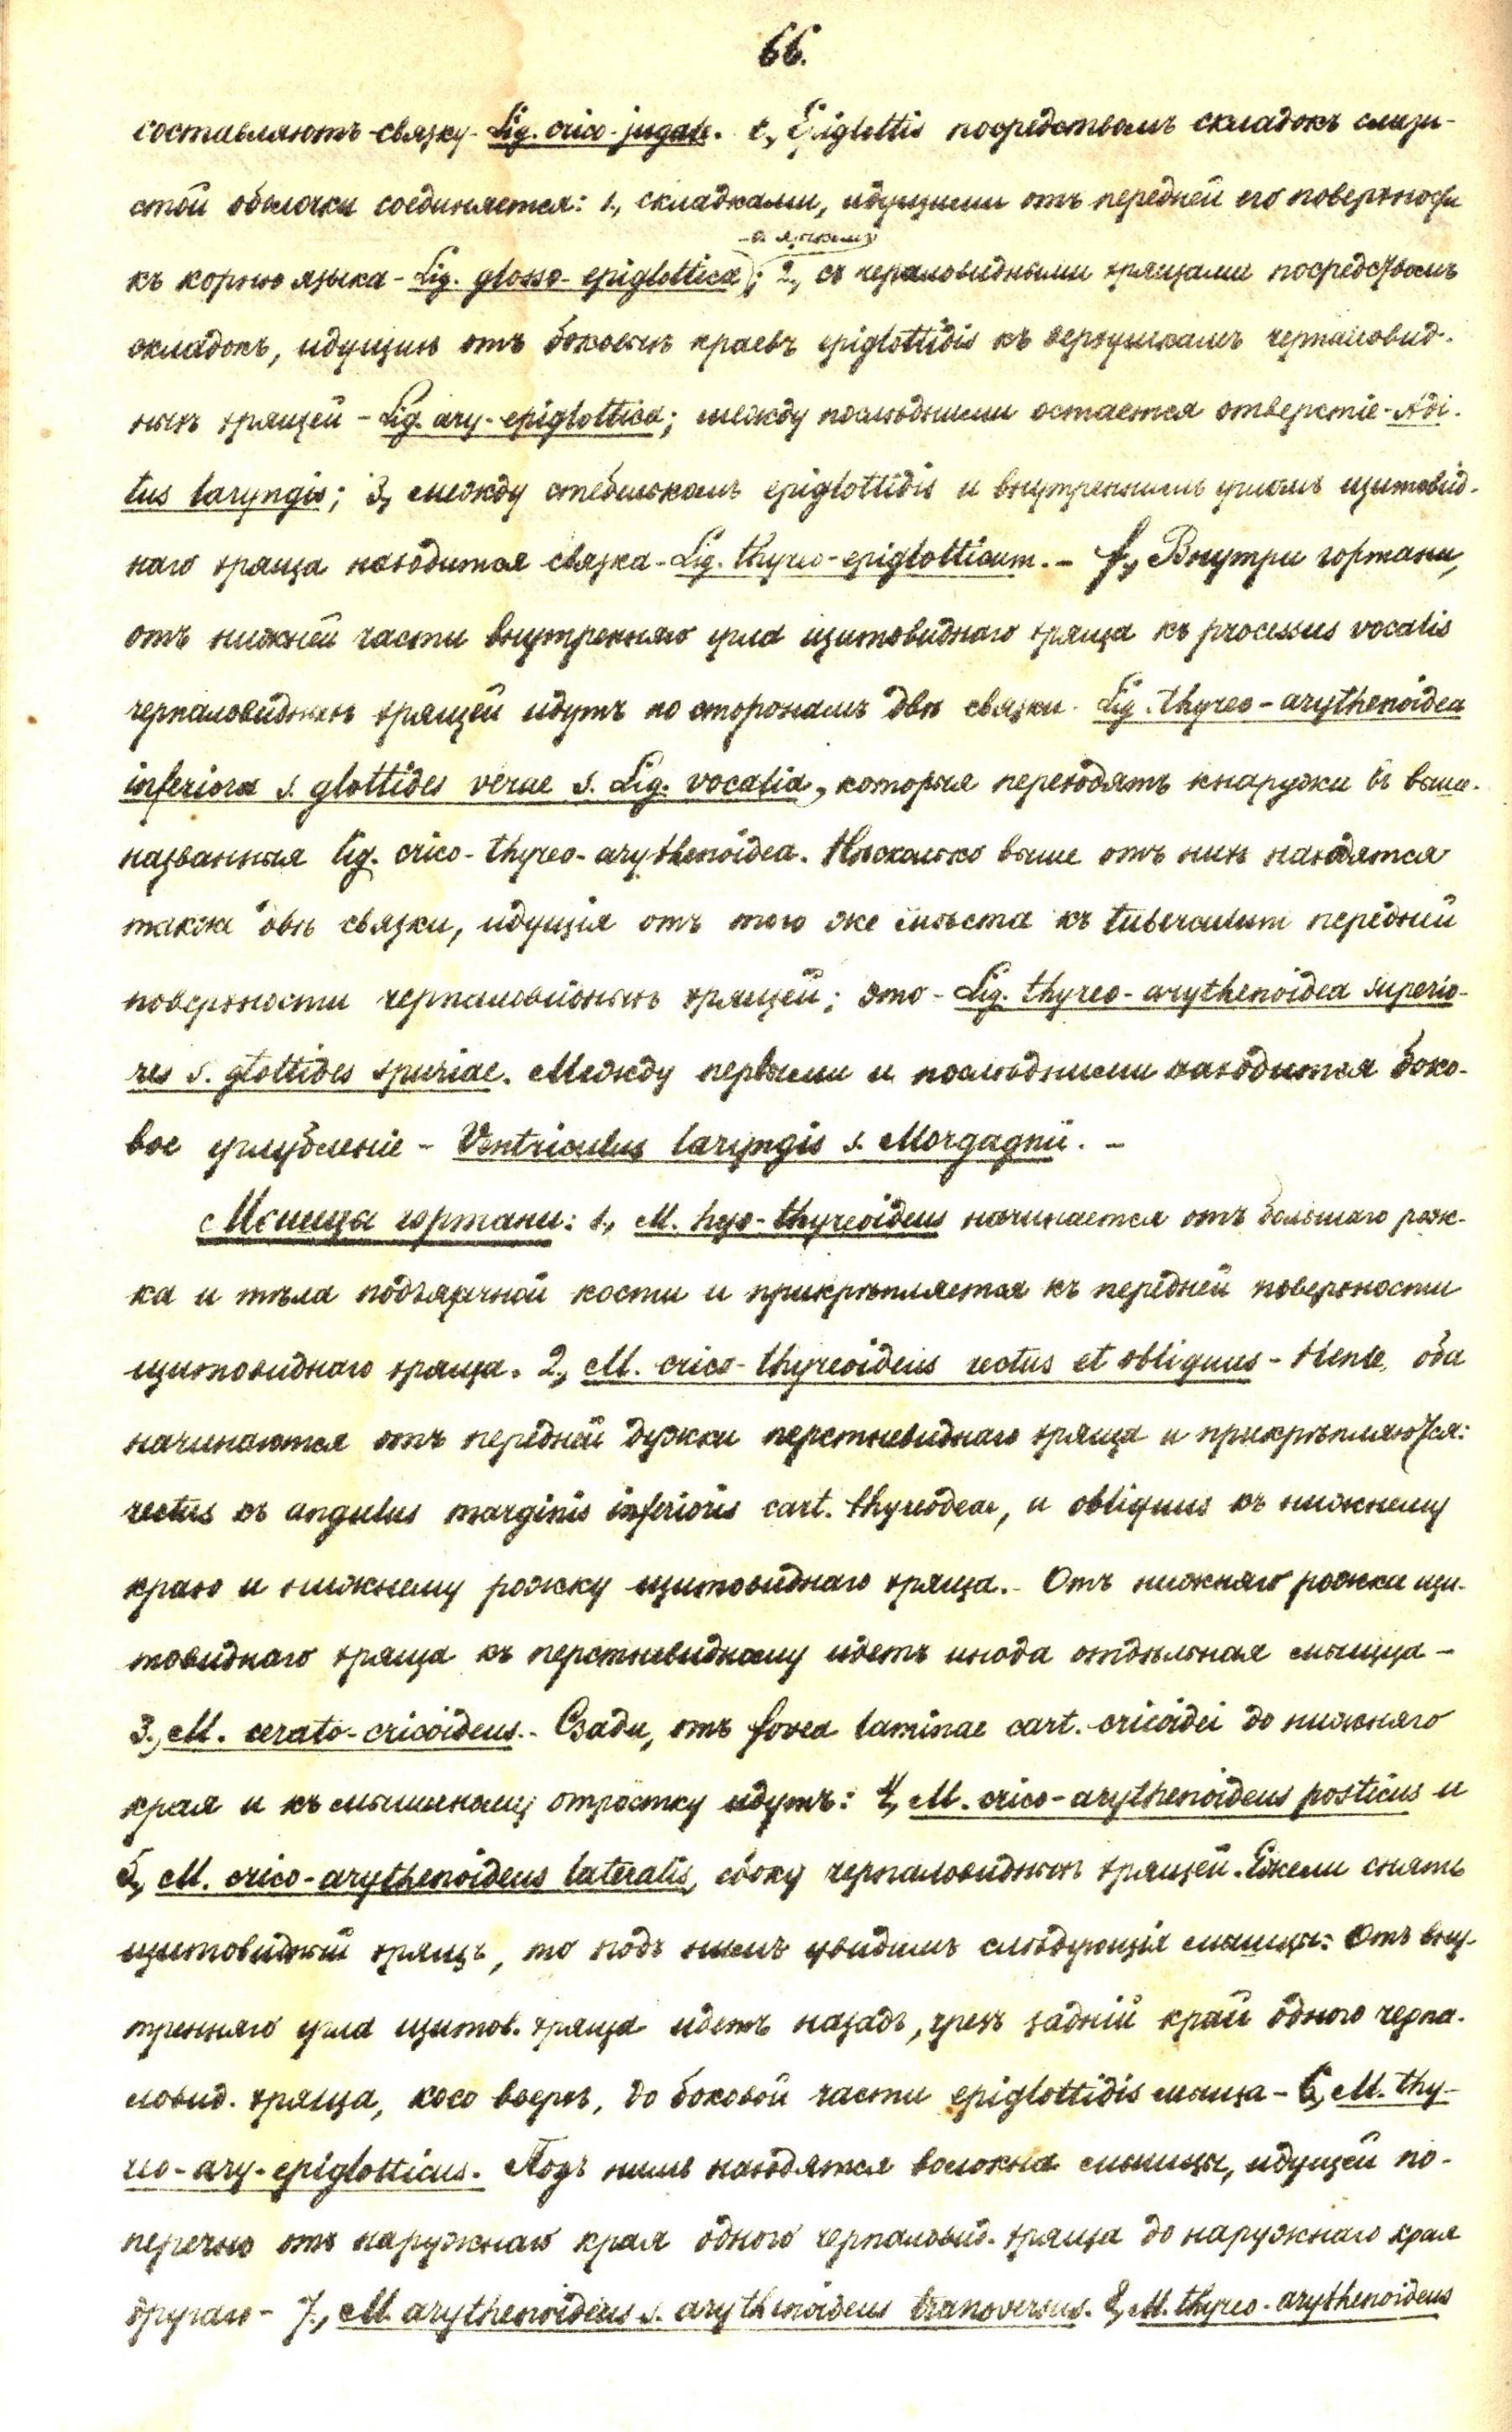 66.
составляютъ связку - Lig. crico-jugale. e, Epiglottis посредствомъ складокъ слизи-
стой оболочки соединяется: 1., складками, идущими отъ передней его поверхности
къ корню языка - Lig. glosso-epiglottica; 2., съ черпаловидными хрящами посредствомъ
складокъ, идущихъ отъ боковыхъ краевъ epiglottidis къ верхушкамъ черпаловид-
ныхъ хрящей - Lig. ary-epiglottica; между послѣдними остается отверстіе - Adi-
tus laryngis; 3, между стебелькомъ epiglottidis и внутреннимъ угломъ щитовид-
наго хряща находится связка - Lig. thyreo-epiglotticum. - f., Внутри гортани,
отъ нижней части внутренняго угла щитовиднаго хряща къ processus vocalis
черпаловидныхъ хрящей идутъ по сторонамъ двѣ связки - Lig. thyreo-arythenoidea
inferiora s. glottides verae s. Lig. vocalia, которыя переходятъ кнаружи въ выше-
названныя lig. crico-thyreo-arythenoidea. Нѣсколько выше отъ нихъ находятся
также двѣ связки, идущія отъ того же мѣста къ tuberculum передней
поверхности черпаловидныхъ хрящей; это - Lig. thyreo-arythenoidea superio-
res s. glottides spuriae. Между первыми и послѣдними находится боко-
вое углубленіе - Ventriculus laryngis s. Morgagnii. -
Мышцы гортани: 1., M. hyo-thyreoideus начинается отъ большаго рож-
ка и тѣла подъязычной кости и прикрѣпляется къ передней поверхности
щитовиднаго хряща. 2., M. crico-thyreoideus rectus et obliquus - Henle, оба
начинаются отъ передней дужки перстневиднаго хряща и прикрѣпляются:
rectus къ angulus marginis inferioris cart. thyreodeae, и obliquus къ нижнему
краю и нижнему рожку щитовиднаго хряща. - Отъ нижняго рожка щи-
товиднаго хряща къ перстневидному идетъ иногда отдѣльная мышца -
3., M. cerato-cricoideus. - Сзади, отъ fovea laminae cart. cricoidei до нижняго
края и къ мышечному отростку идутъ: 4, M. crico-arythenoideus posticus и
5, M. crico-arythenoideus lateralis, сбоку черпаловидныхъ хрящей. Ежели снять
щитовидный хрящъ, то подъ нимъ увидимъ слѣдующія мышцы: Отъ вну-
тренняго угла щитов. хряща идетъ назадъ, чрезъ задній край одного черпа-
ловид. хряща, косо вверхъ, до боковой части epiglottidis мышца - 6, M. thy-
reo-ary-epiglotticus. Подъ нимъ находятся волокна мышцы, идущей по-
перечно отъ наружнаго края одного черпаловид. хряща до наружнаго края
другаго - 7., M. arythenoideus s. arythenoideus transversus. 8, M. thyreo-arythenoideus